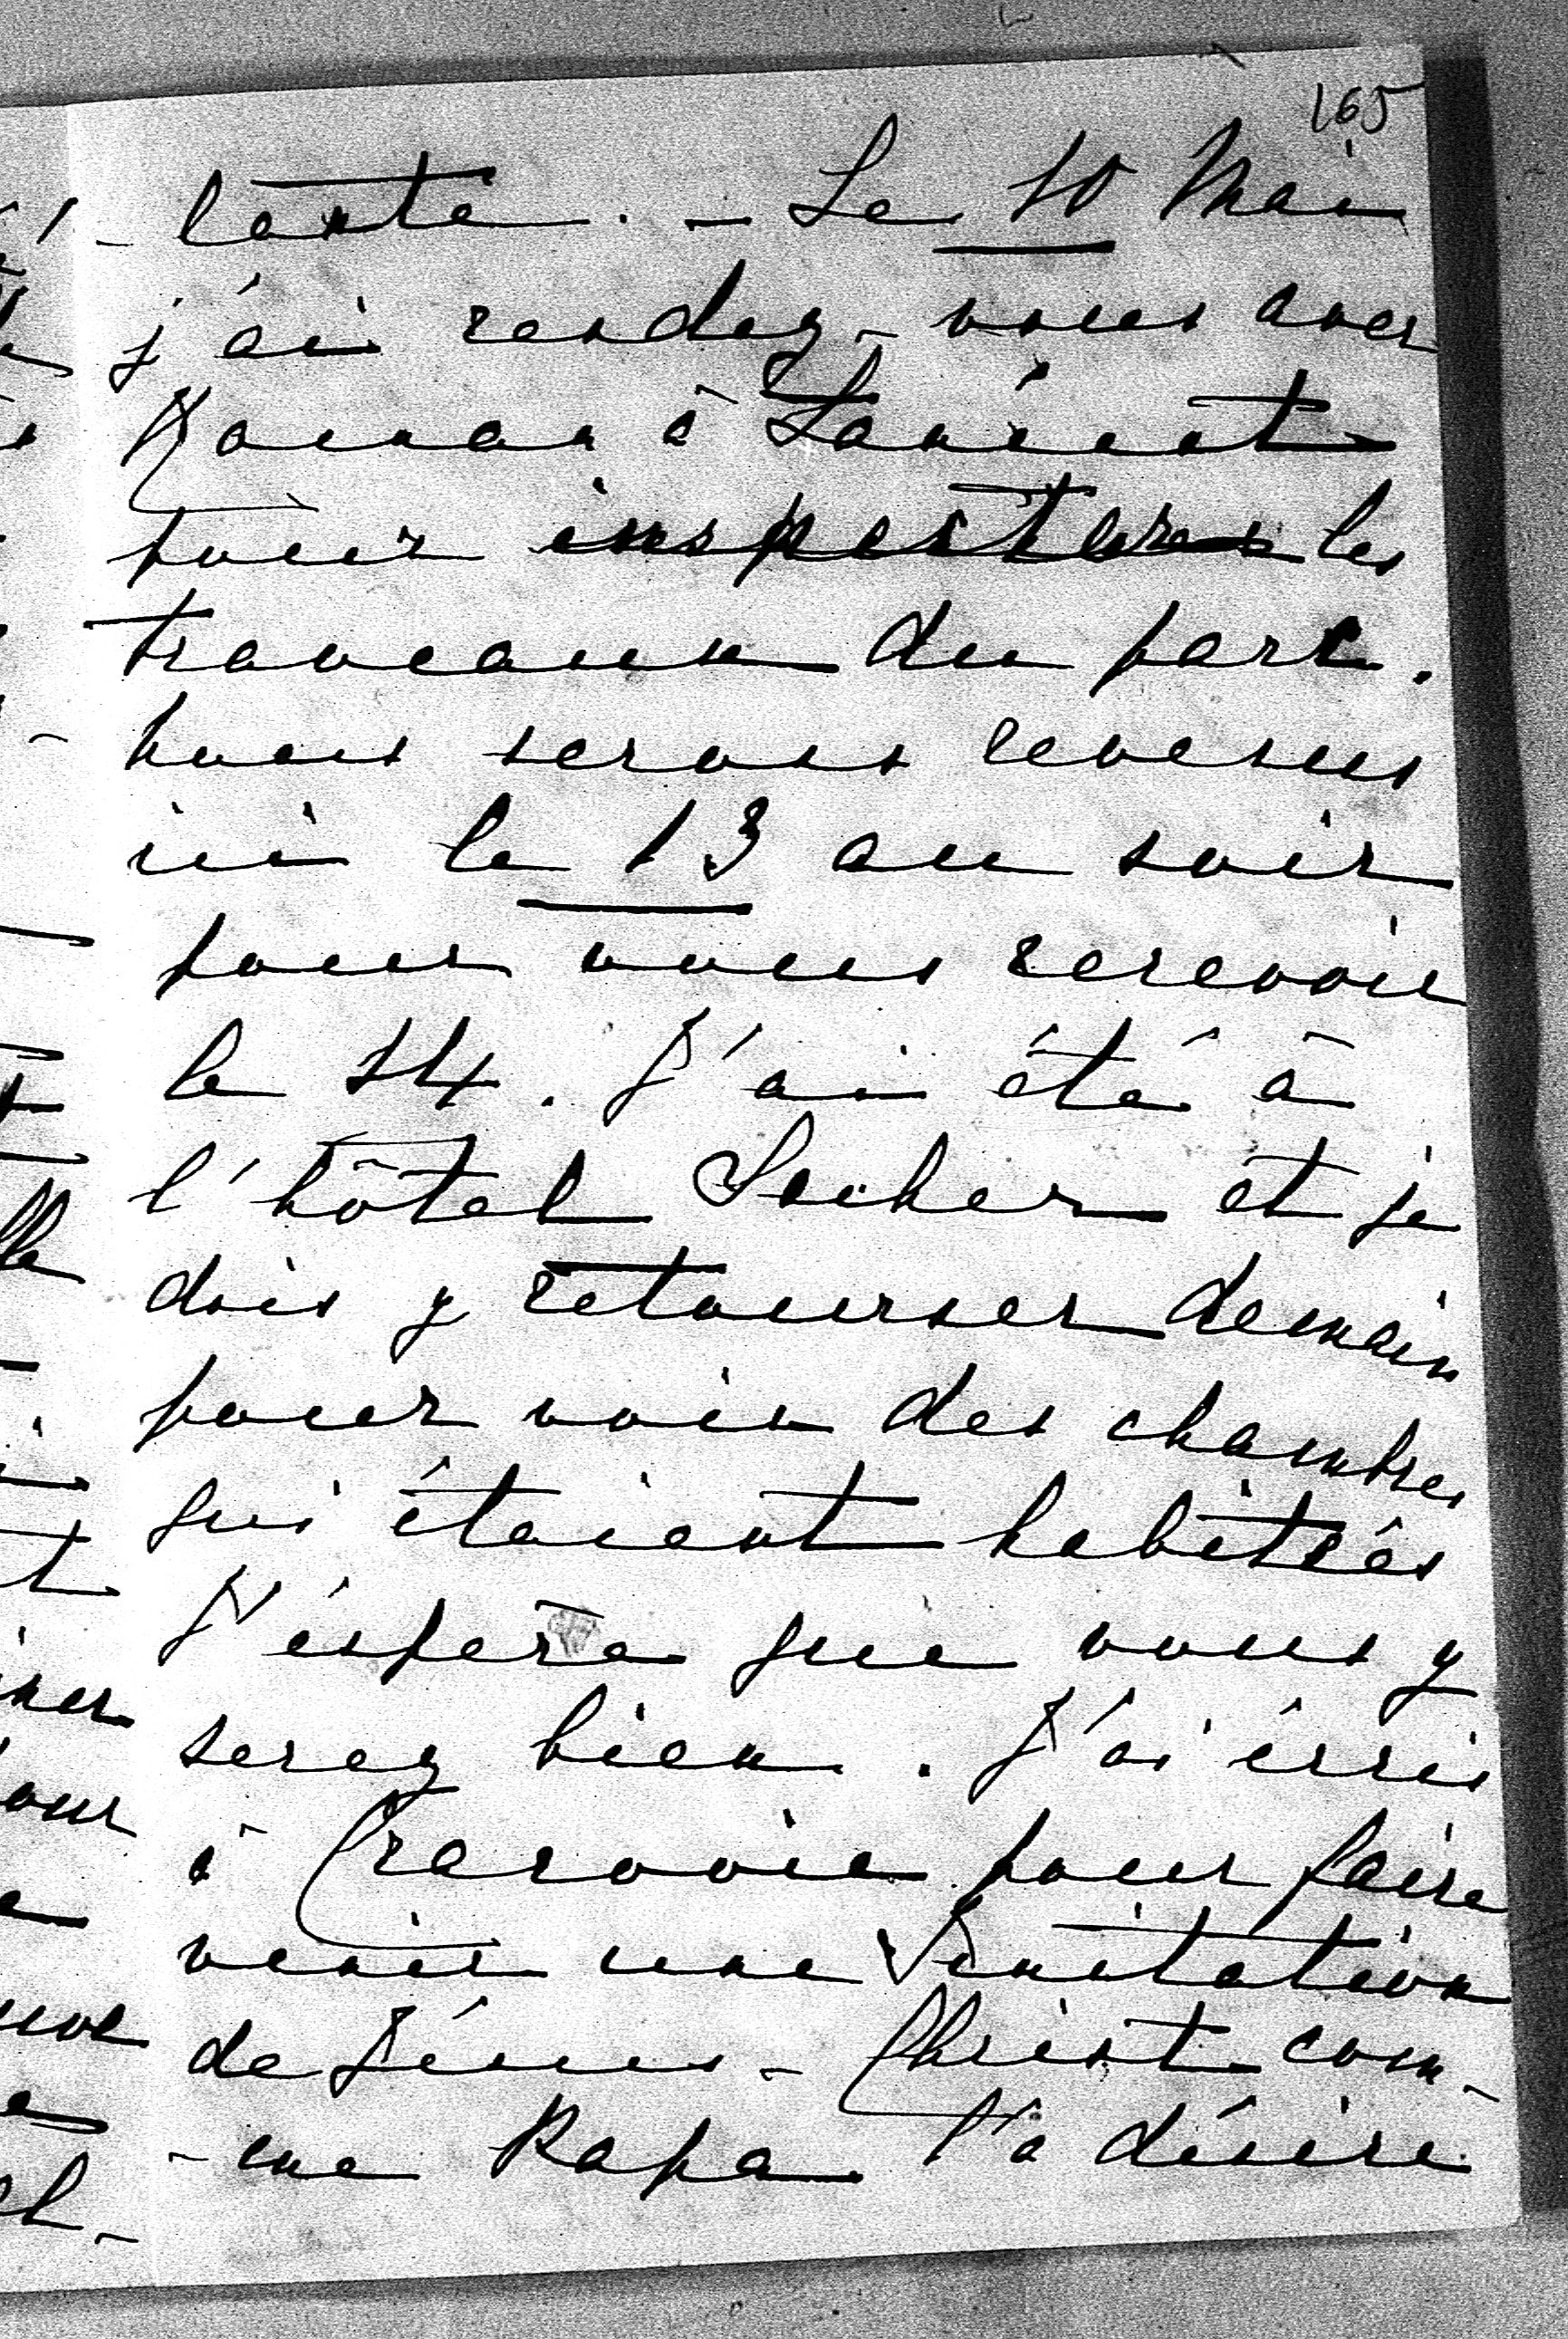 165
lente. — Le 10 Mai
j'ai rendez-vous avec
Roman à Łańcut
pour inspecter les
travaux du parc.
nous serons revenus
ici le 13 au soir
pour vous recevoir
le 14. J'ai été à
l'hôtel Sacher et je
dois y retourner demain
pour voir des chambres
qui étaient habitées
J'espère que vous y
serez bien. J'ai écris
à Cracovie pour faire
venir une Imitation
de Jésus-Christ com-
-me Papa l'a désiré